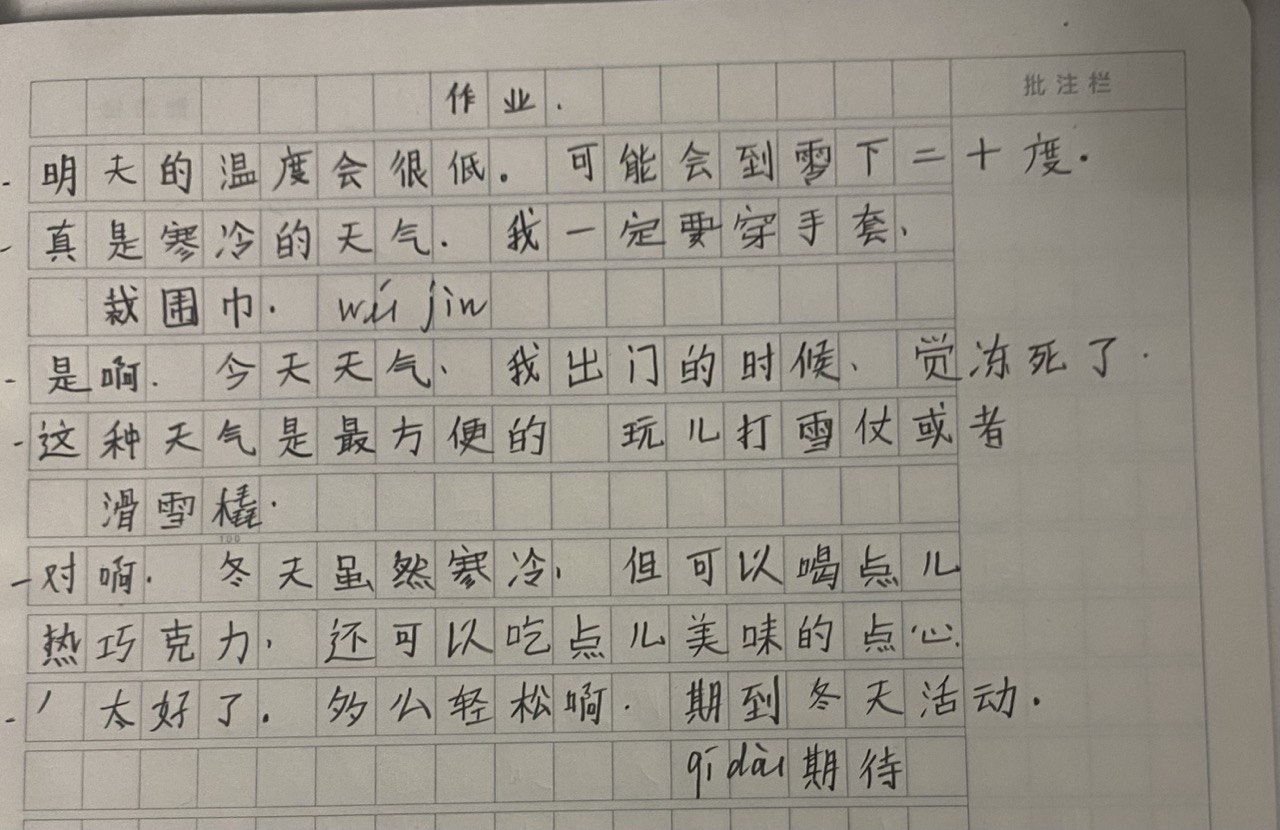 作业.
批注栏
- 明天的温度会很低. 可能会到雪下二十度.
- 真是寒冷的天气. 我一定要穿手套、
裁围巾. wéi jīn
- 是啊. 今天天气、我出门的时候、觉冻死了.
- 这种天气是最方便的 玩儿打雪仗或者
滑雪橇.
100
- 对啊. 冬天虽然寒冷, 但可以喝点儿
热巧克力, 还可以吃点儿美味的点心.
- ' 太好了. 多么轻松啊. 期到冬天活动.
qī dài 期待